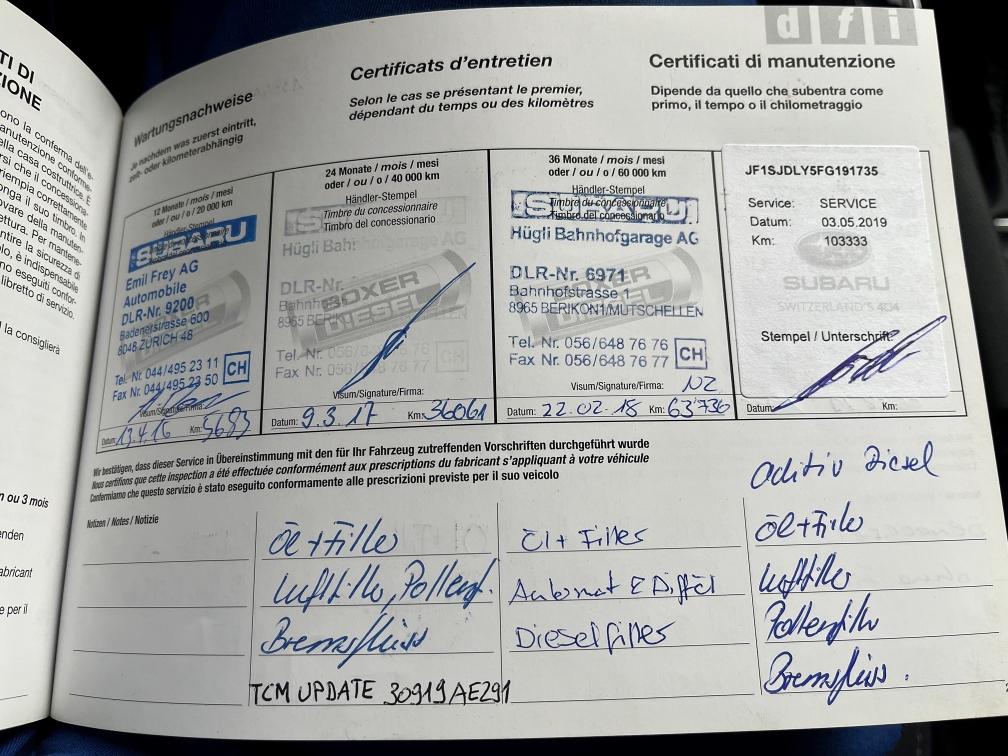 TI DI
ZIONE
dfi
Wartungsnachweise
Je nachdem was zuerst eintritt,
zeit- oder kilometerabhängig
Certificats d'entretien
Selon le cas se présentant le premier,
dépendant du temps ou des kilomètres
Certificati di manutenzione
Dipende da quello che subentra come
primo, il tempo o il chilometraggio
12 Monate / mois / mesi
oder / ou / o / 20 000 km
Händler-Stempel
SUBARU
Emil Frey AG
Automobile
DLR-Nr. 9200
Badenerstrasse 600
8048 ZÜRICH 48
Tel. Nr. 044/495 23 11
Fax Nr. 044/495 23 50
CH
Visum/Signature/Firma:
Datum: 13.4.16 Km: 5683
24 Monate / mois / mesi
oder / ou / o / 40 000 km
Händler-Stempel
Timbre du concessionnaire
Timbro del concessionario
Hügli Bahnhofgarage AG
DLR-Nr.
BOXER
DIESEL
8965 BERIKON
Tel. Nr. 056/648
Fax Nr. 056/648
Visum/Signature/Firma:
Datum: 9.3.17 Km: 36061
36 Monate / mois / mesi
oder / ou / o / 60 000 km
Händler-Stempel
Timbre du concessionnaire
Timbro del concessionario
SUBARU
Hügli Bahnhofgarage AG
DLR-Nr. 6971
Bahnhofstrasse 1
8965 BERIKON1/MUTSCHELLEN
Tel. Nr. 056/648 76 76
Fax Nr. 056/648 76 77
CH
Visum/Signature/Firma: NZ
Datum: 22.02.18 Km: 63'736
JF1SJDLY5FG191735
Service: SERVICE
Datum: 03.05.2019
Km: 103333
SUBARU
SWITZERLAND'S 4x4
Stempel / Unterschrift:
Datum: Km:
Wir bestätigen, dass dieser Service in Übereinstimmung mit den für Ihr Fahrzeug zutreffenden Vorschriften durchgeführt wurde
Nous certifions que cette inspection a été effectuée conformément aux prescriptions du fabricant s'appliquant à votre véhicule
Confermiamo che questo servizio è stato eseguito conformamente alle prescrizioni previste per il suo veicolo
Notizen / Notes / Notizie
Öl + Filter
Luftfilter, Pollenf.
Bremsflüss
TCM UPDATE 30919AE291
Öl + Filter
Automat & Diff öl
Dieselfilter
Aditiv Diesel
Öl + Filter
Luftfilter
Pollenfilter
Bremsflüss.